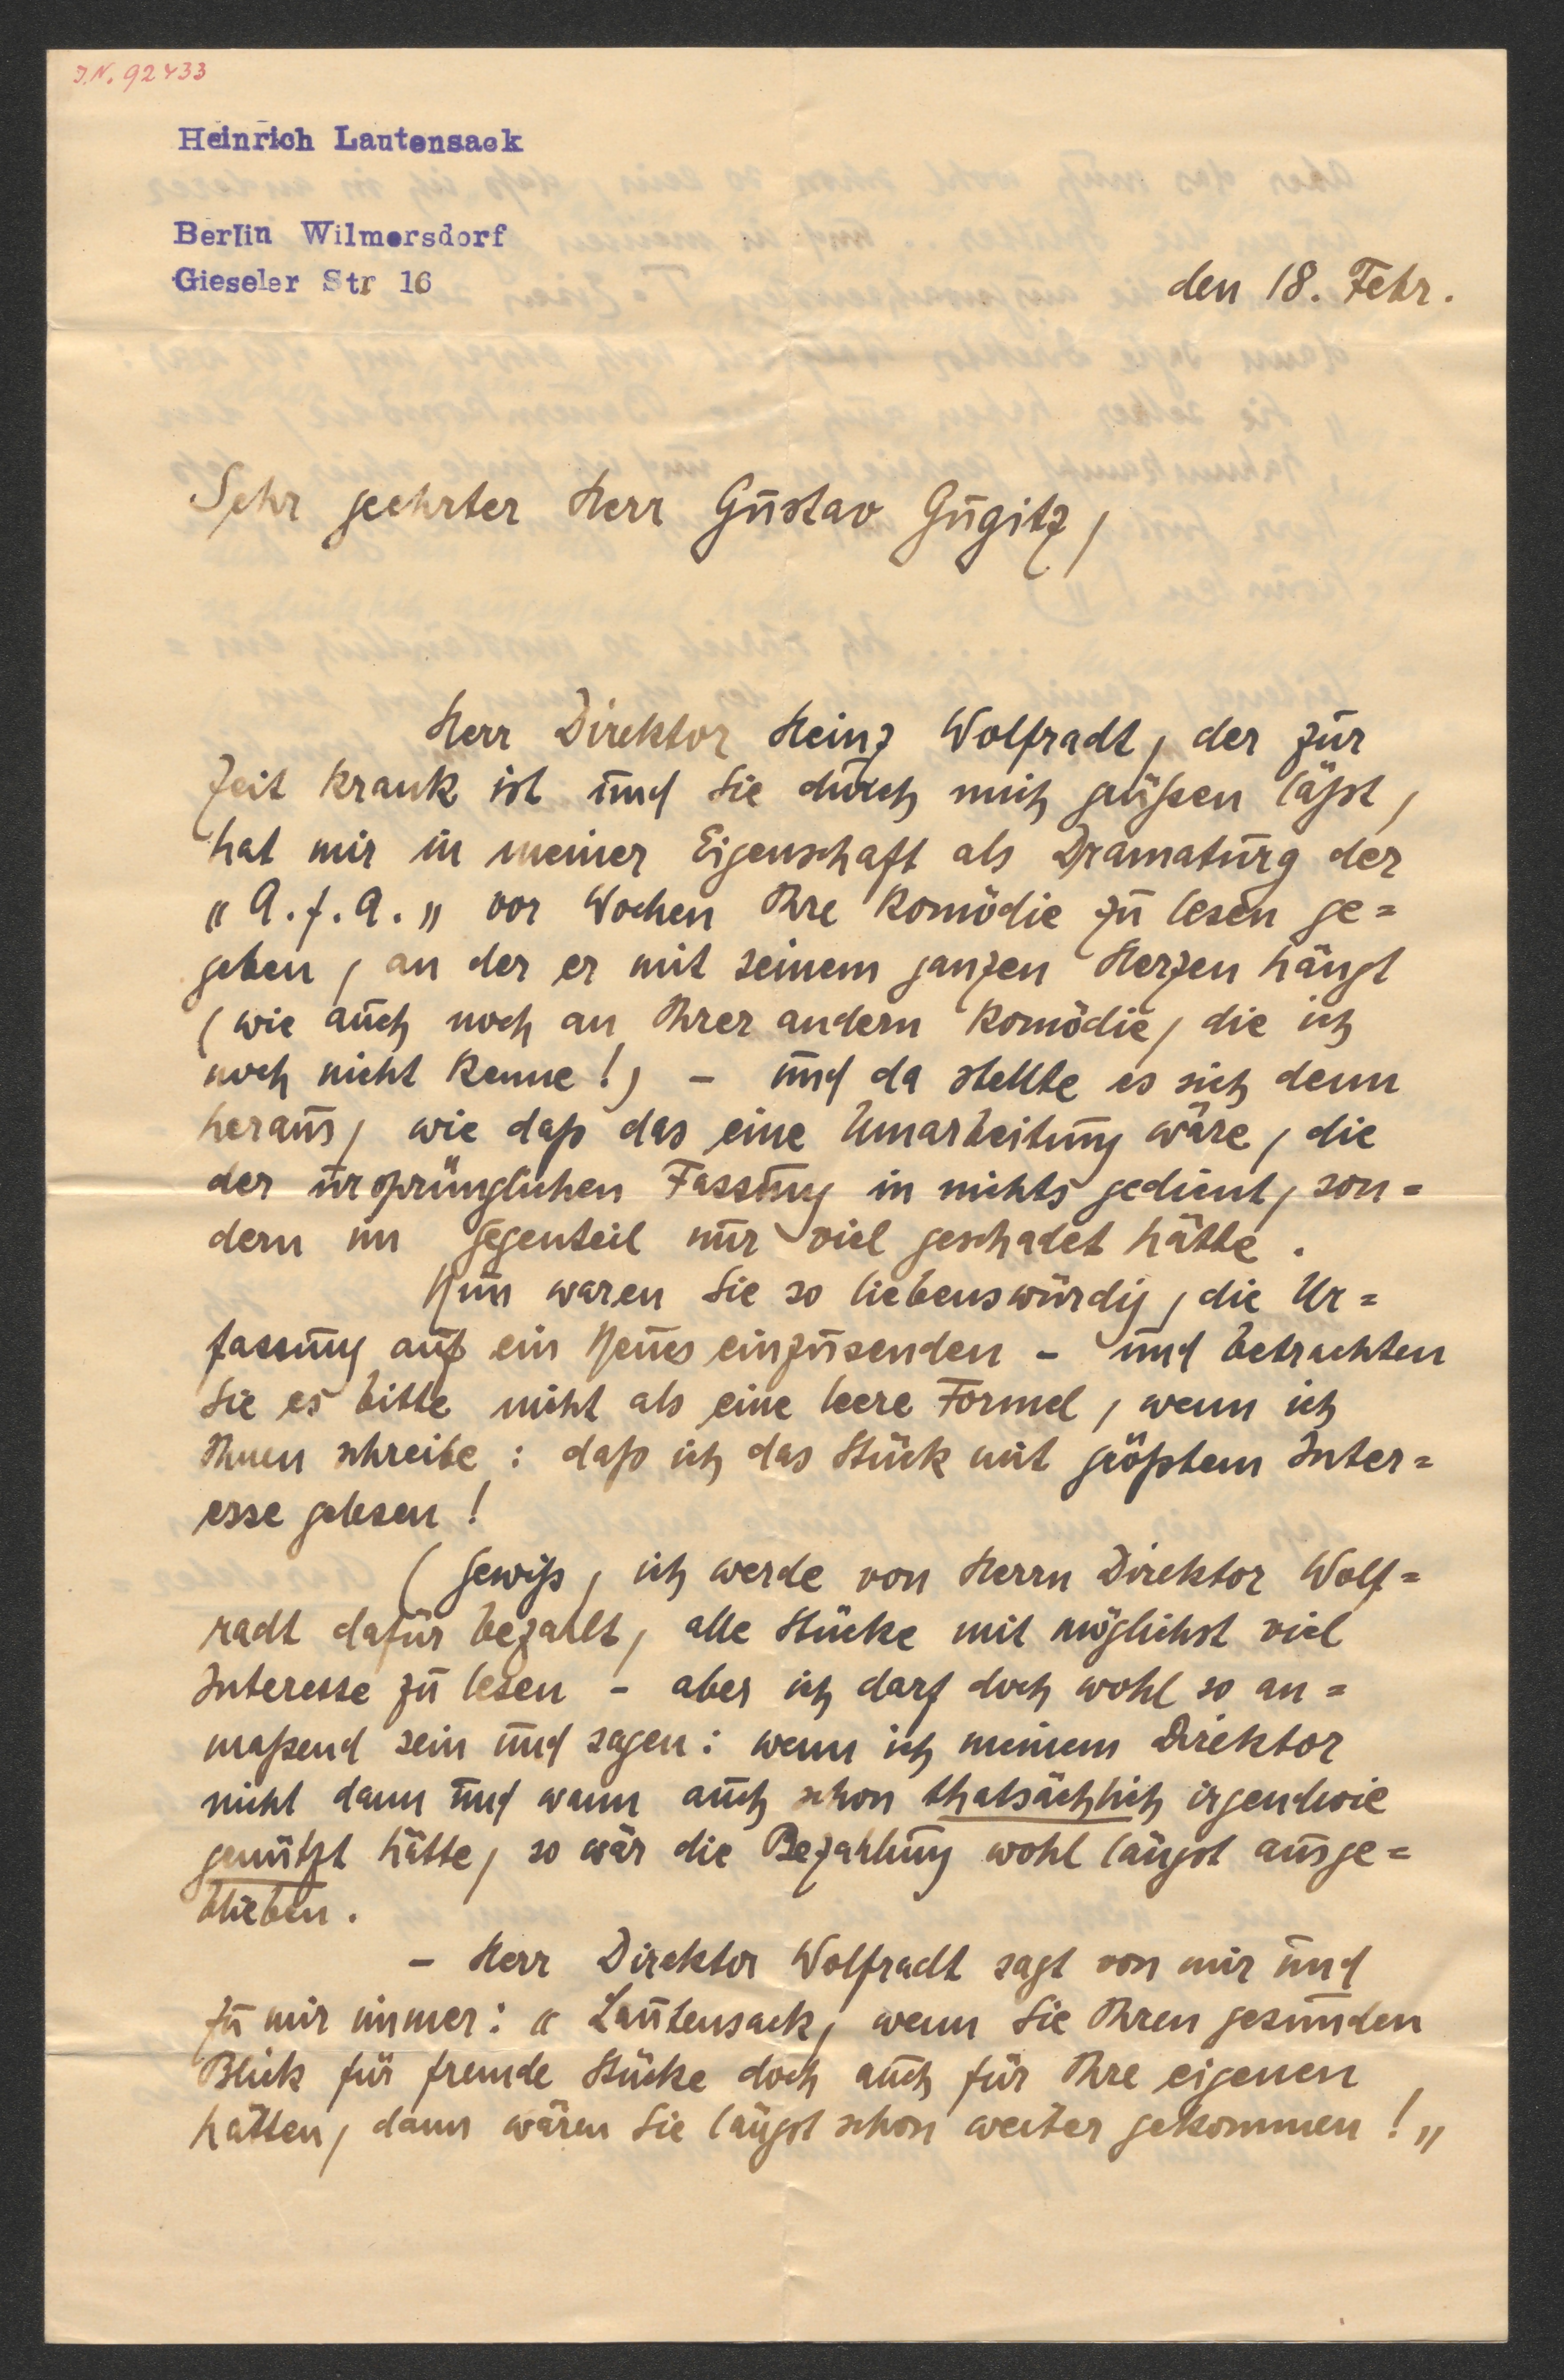 J.N. 92433
Heinrich Lautensack
Berlin Wilmersdorf
Gieseler Str 16
den 18. Febr.
Sehr geehrter Herr Gustav Gugitz,
Herr Direktor Heinz Wolfradt, der zur
Zeit krank ist und Sie durch mich grüßen läßt,
hat mir in meiner Eigenschaft als Dramaturg der
„A.f.A.„ vor Wochen Ihre Komödie zu lesen ge=
geben, an der er mit seinem ganzen Herzen hängt
(wie auch noch an Ihrer andern Komödie, die ich
noch nicht kenne!) – und da stellte es sich denn
heraus, wie daß das eine Umarbeitung wäre, die
der ursprünglichen Fassung in nichts gedient, son=
dern im Gegenteil nur viel geschadet hätte.
Nun waren Sie so liebenswürdig, die Ur=
fassung auf ein Neues einzusenden – und betrachten
Sie es bitte nicht als eine leere Formel, wenn ich
Ihnen schreibe: daß ich das Stück mit größtem Inter=
esse gelesen!
(Gewiß, ich werde von Herrn Direktor Wolf=
radt dafür bezahlt, alle Stücke mit möglichst viel
Interesse zu lesen – aber ich darf doch wohl so an=
maßend sein und sagen: wenn ich meinem Direktor
nicht dann und wann auch schon thatsächlich irgendwie
genützt hätte, so wär die Bezahlung wohl längst ausge=
blieben.
– Herr Direktor Wolfradt sagt von mir und
zu mir immer: „Lautensack, wenn Sie Ihren gesunden
Blick für fremde Stücke doch auch für Ihre eigenen
hätten, dann wären Sie längst schon weiter gekommen!„